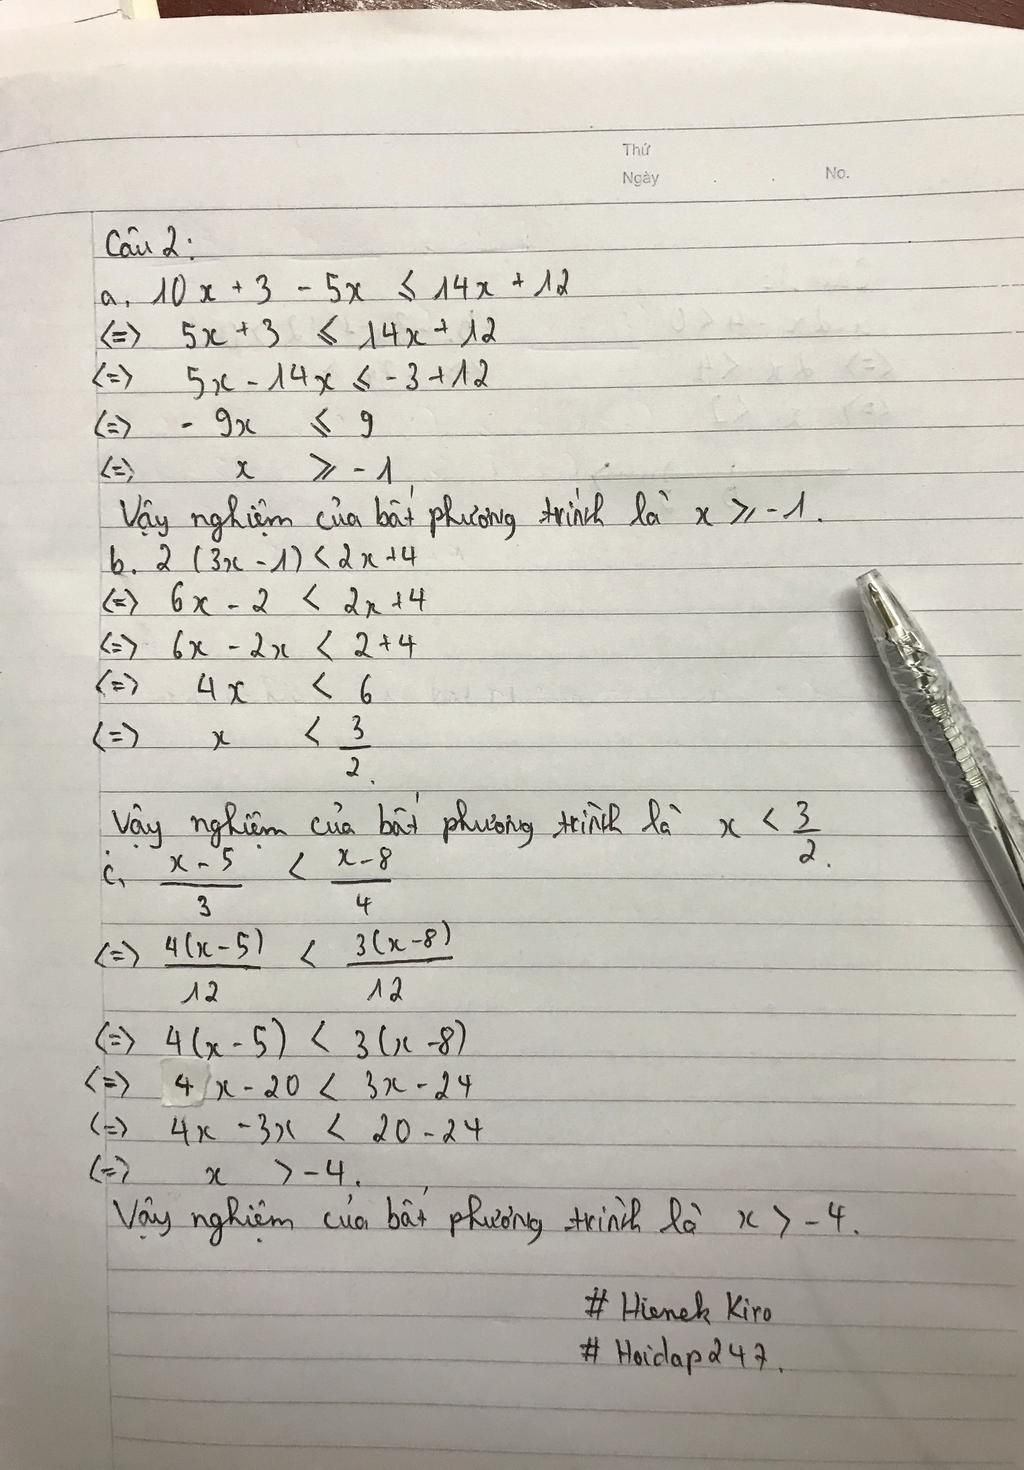 Thứ
Ngày . . No.
Câu 2:
a, 10x + 3 - 5x ⩽ 14x + 12
<=> 5x + 3 ⩽ 14x + 12
<=> 5x - 14x ⩽ -3 + 12
<=> - 9x ⩽ 9
<=> x ⩾ -1
Vậy nghiệm của bất phương trình là x ⩾ -1.
b. 2 (3x - 1) < 2x + 4
<=> 6x - 2 < 2x + 4
<=> 6x - 2x < 2 + 4
<=> 4x < 6
<=> x < 3/2.
Vậy nghiệm của bất phương trình là x < 3/2.
c, (x - 5)/3 < (x - 8)/4
<=> 4(x - 5)/12 < 3(x - 8)/12
<=> 4(x - 5) < 3(x - 8)
<=> 4x - 20 < 3x - 24
<=> 4x - 3x < 20 - 24
<=> x > -4.
Vậy nghiệm của bất phương trình là x > -4.
# Hienek Kiro
# Hoidap247.